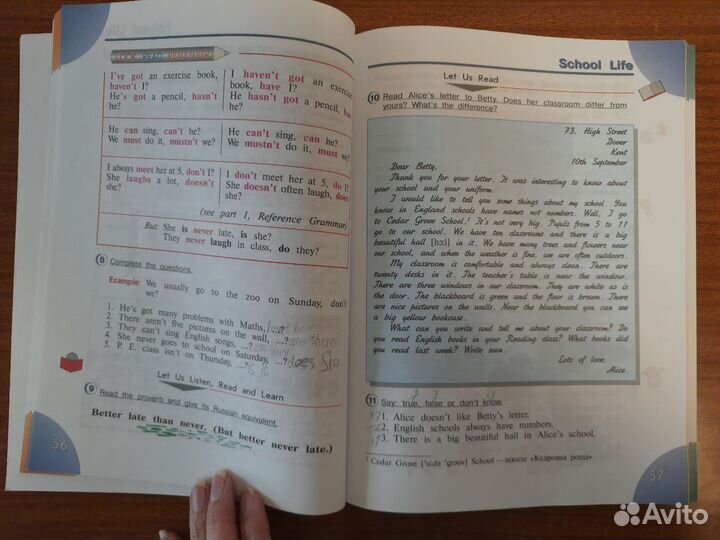 LOOK, READ, REMEMBER!
I've got an exercise book,
haven't I?
He's got a pencil, hasn't
he?
I haven't got an exercise
book, have I?
He hasn't got a pencil, has
he?
He can sing, can't he?
We must do it, mustn't we?
He can't sing, can he?
We mustn't do it, must we?
I always meet her at 5, don't I?
She laughs a lot, doesn't
she?
I don't meet her at 5, do I?
She doesn't often laugh, does
she?
(see part 1, Reference Grammar)
But: She is never late, is she?
They never laugh in class, do they?
8 Complete the questions.
Example: We usually go to the zoo on Sunday, don't
we?
1. He's got many problems with Maths, ...?
2. There aren't five pictures on the wall, ...? are there?
3. They can't sing English songs, ...?
4. She never goes to school on Saturday, ...? does She
5. P. E. class isn't on Thursday, ...?
Let Us Listen, Read and Learn
9 Read the proverb and give its Russian equivalent.
Better late than never. (But better never late.)
56
School Life
Let Us Read
10 Read Alice's letter to Betty. Does her classroom differ from
yours? What's the difference?
73, High Street
Dover
Kent
10th September
Dear Betty,
Thank you for your letter. It was interesting to know about
your school and your uniform.
I would like to tell you some things about my school. You
know in England schools have names not numbers. Well, I go
to Cedar Grove School.¹ It's not very big. Pupils from 5 to 11
go to our school. We have ten classrooms and there is a big
beautiful hall [hɔ:l] in it. We have many trees and flowers near
our school, and when the weather is fine, we are often outdoors.
My classroom is comfortable and always clean. There are
twenty desks in it. The teacher's table is near the window.
There are three windows in our classroom. They are white as is
the door. The blackboard is green and the floor is brown. There
are nice pictures on the walls. Near the blackboard you can see
a big yellow bookcase.
What can you write and tell me about your classroom? Do
you read English books in your Reading class? What books did
you read last week? Write soon.
Lots of love,
Alice.
11 Say: true, false or don't know.
1. Alice doesn't like Betty's letter.
2. English schools always have numbers.
3. There is a big beautiful hall in Alice's school.
¹ Cedar Grove ['si:də 'grəʊv] School — школа «Кедровая роща»
57
Avito